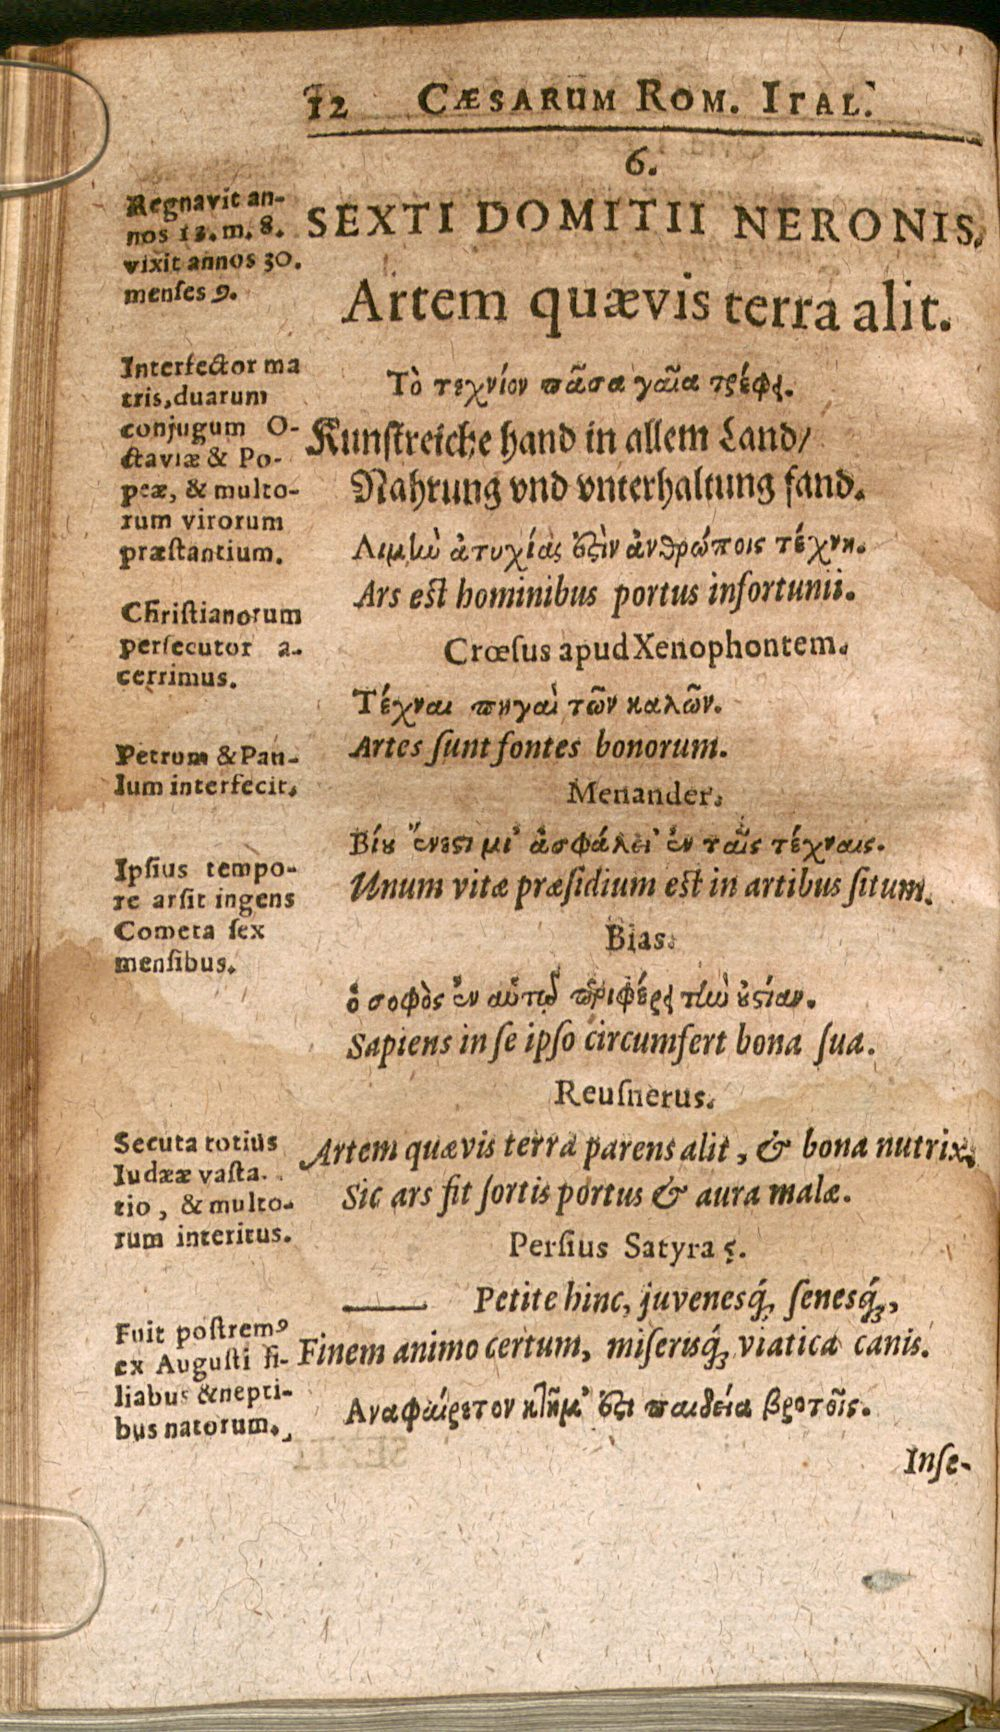 12 CÆSARUM ROM. ITAL.
6.
SEXTI DOMITII NERONIS.
Artem quævis terra alit.
Τὸ τεχνίον πᾶσα γαῖα τρέφει.
Kunstreiche hand in allem Land/
Nahrung vnd vnterhaltung fand.
Λιμὴν ἀτυχίας ἐστὶν ἀνθρώποις τέχνη.
Ars est hominibus portus infortunii.
Crœſus apud Xenophontem.
Τέχναι πηγαὶ τῶν καλῶν.
Artes ſunt fontes bonorum.
Menander.
Βίου ἔνεστι μί' ἀσφάλει' ἐν ταῖς τέχναις.
Unum vitæ præſidium est in artibus ſitum.
Bias.
ὁ σοφὸς ἐν αὑτῷ περιφέρει τὴν οὐσίαν.
Sapiens in ſe ipſo circumfert bona ſua.
Reuſnerus.
Artem quævis terra parens alit, & bona nutrix.
Sic ars fit fortis portus & aura malæ.
Perſius Satyra 5.
Petite hinc, juvenesq́;, ſenesq́;,
Finem animo certum, miſerisq́; viatica canis.
Αναφαίρετον κτῆμ' ἐστι παιδεία βροτοῖς.
Inſe-
Regnavit an-
nos 13. m. 8.
vixit annos 30.
menſes 9.
Interfector ma
tris, duarum
conjugum O-
ctaviæ & Po-
peæ, & multo-
rum virorum
præſtantium.
Chriſtianorum
perſecutor a-
cerrimus.
Petrum & Pau-
lum interfecit.
Ipſius tempo-
re arſit ingens
Cometa ſex
menſibus.
Secuta totius
Iudææ vaſta-
tio, & multo-
rum interitus.
Fuit poſtremꝰ
ex Auguſti fi-
liabus & nepti-
bus natorum.